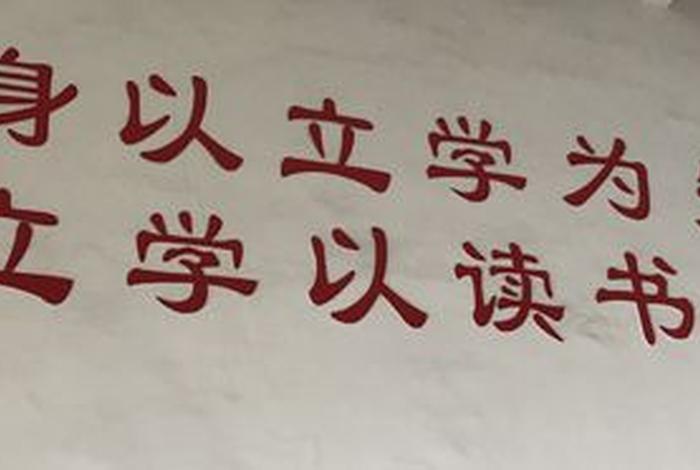 身以立学为
立学以读书